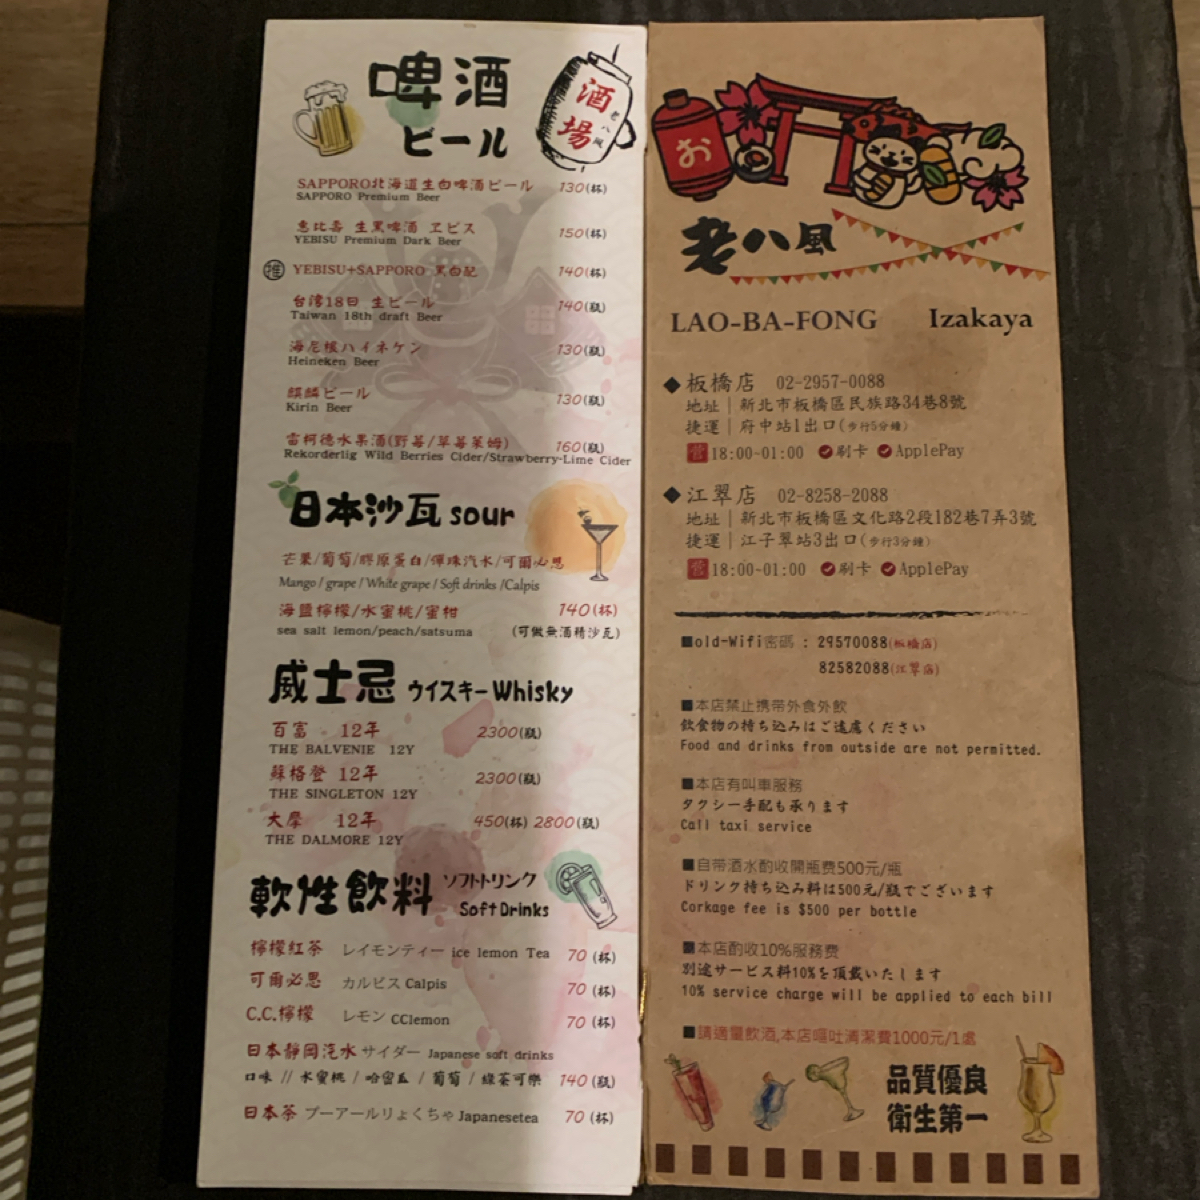 啤酒
ビール
酒場
老八風
SAPPORO北海道生白啤酒ビール 130(杯)
SAPPORO Premium Beer
惠比壽 生黑啤酒 ヱビス 150(杯)
YEBISU Premium Dark Beer
推 YEBISU+SAPPORO 黑白配 140(杯)
台湾18日 生ビール 140(瓶)
Taiwan 18th draft Beer
海尼根ハイネケン 130(瓶)
Heineken Beer
麒麟ビール 130(瓶)
Kirin Beer
雷柯德水果酒(野莓/草莓萊姆) 160(瓶)
Rekorderlig Wild Berries Cider/Strawberry-Lime Cider
日本沙瓦 sour
芒果/葡萄/膠原蛋白/彈珠汽水/可爾必思
Mango / grape / White grape / Soft drinks /Calpis
海鹽檸檬/水蜜桃/蜜柑 140(杯)
sea salt lemon/peach/satsuma (可做無酒精沙瓦)
威士忌 ウイスキー Whisky
百富 12年 2300(瓶)
THE BALVENIE 12Y
蘇格登 12年 2300(瓶)
THE SINGLETON 12Y
大摩 12年 450(杯) 2800(瓶)
THE DALMORE 12Y
軟性飲料 ソフトトリンク
Soft Drinks
檸檬紅茶 レイモンティー ice lemon Tea 70 (杯)
可爾必思 カルビス Calpis 70 (杯)
C.C.檸檬 レモン CClemon 70 (杯)
日本靜岡汽水 サイダー Japanese soft drinks
口味 // 水蜜桃 / 哈密瓜 / 葡萄 / 綠茶可樂 140 (瓶)
日本茶 プーアールりょくちゃ Japanesetea 70 (杯)
お
老八風
LAO-BA-FONG Izakaya
◆板橋店 02-2957-0088
地址｜新北市板橋區民族路34巷8號
捷運｜府中站1出口(步行5分鐘)
營18:00-01:00 刷卡 ApplePay
◆江翠店 02-8258-2088
地址｜新北市板橋區文化路2段182巷7弄3號
捷運｜江子翠站3出口(步行3分鐘)
營18:00-01:00 刷卡 ApplePay
■old-Wifi密碼 : 29570088(板橋店)
82582088(江翠店)
■本店禁止携帯外食外飲
飲食物の持ち込みはご遠慮ください
Food and drinks from outside are not permitted.
■本店有叫車服務
タクシー手配も承ります
Call taxi service
■自带酒水酌收開瓶费500元/瓶
ドリンク持ち込み料は500元/瓶でございます
Corkage fee is $500 per bottle
■本店酌收10%服務费
別途サービス料10%を頂戴いたします
10% service charge will be applied to each bill
■請適量飲酒,本店嘔吐清潔費1000元/1處
品質優良
衛生第一